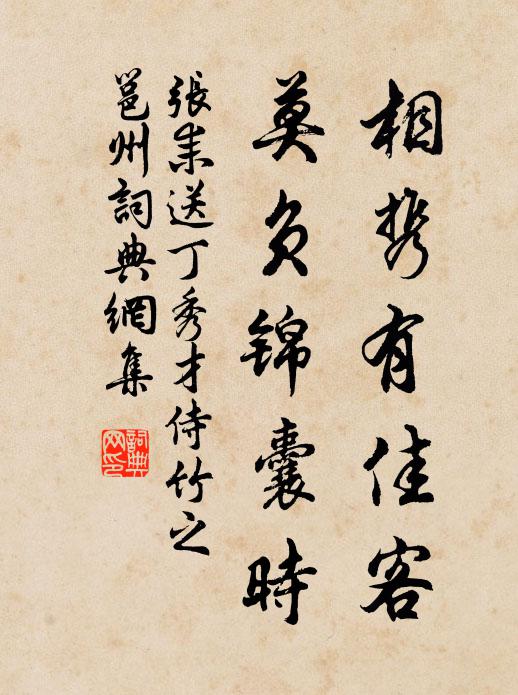 相携有佳客
莫負錦囊時
張耒送丁秀才侍竹之
邕州詞典網集
詞典网印